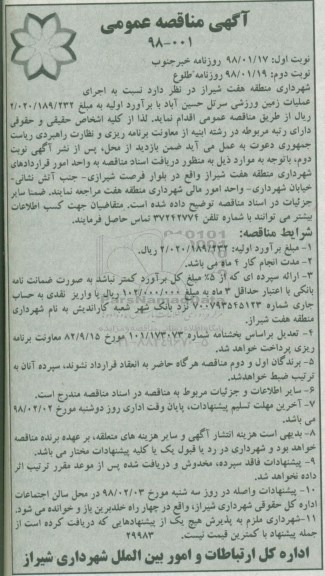 آگهی مناقصه عمومی
۹۸-۰۰۱
نوبت اول: ۹۸/۰۱/۱۷ روزنامه خبرجنوب
نوبت دوم: ۹۸/۰۱/۱۹ روزنامه طلوع
شهرداری منطقه هفت شیراز در نظر دارد نسبت به اجرای
عملیات زمین ورزشی سرتل حسین آباد با برآورد اولیه به مبلغ ۲/۰۲۰/۱۸۹/۲۳۲
ریال از طریق مناقصه عمومی اقدام نماید. لذا از کلیه اشخاص حقیقی و حقوقی
دارای رتبه مربوطه در رشته ابنیه از معاونت برنامه ریزی و نظارت راهبردی ریاست
جمهوری دعوت به عمل می آید ضمن بازدید از محل، پس از نشر آگهی نوبت
دوم، با توجه به موارد ذیل به منظور دریافت اسناد مناقصه به واحد امور قراردادهای
شهرداری منطقه هفت شیراز واقع در بلوار فرصت شیرازی- جنب آتش نشانی-
خیابان شهرداری- واحد امور مالی شهرداری منطقه هفت مراجعه نمایند. ضمنا سایر
جزئیات در اسناد مناقصه توضیح داده شده است. متقاضیان جهت کسب اطلاعات
بیشتر می توانند با شماره تلفن ۳۷۲۶۲۷۷۴ تماس حاصل فرمایند.
شرایط مناقصه:
۱- مبلغ برآورد اولیه: ۲/۰۲۰/۱۸۹/۲۳۲ ریال.
۲- مدت انجام کار ۴ ماه می باشد.
۳- ارائه سپرده ای که از ۵٪ مبلغ کل برآورد کمتر نباشد به صورت ضمانت نامه
بانکی با اعتبار حداقل ۳ ماه به مبلغ ۱۰۲/۰۰۰/۰۰۰ ریال یا واریز نقدی به حساب
جاری شماره ۷۰۰۷۹۳۵۴۵۱۲۳ نزد بانک شهر شعبه کاراندیش به نام شهرداری
منطقه هفت شیراز.
۴- تعدیل براساس بخشنامه شماره ۱۰۱/۱۷۳۰۷۳ مورخ ۸۲/۹/۱۵ معاونت برنامه
ریزی پرداخت خواهد شد.
۵- برندگان اول و دوم مناقصه هرگاه حاضر به انعقاد قرارداد نشوند، سپرده آنان به
ترتیب ضبط خواهدشد.
۶- سایر اطلاعات و جزئیات مربوط به مناقصه در اسناد مناقصه مندرج است.
۷- آخرین مهلت تسلیم پیشنهادات، پایان وقت اداری روز دوشنبه مورخ ۹۸/۰۲/۰۲
می باشد.
۸- بدیهی است هزینه انتشار آگهی و سایر هزینه های متعلقه، بر عهده برنده مناقصه
خواهد بود و شهرداری در رد یا قبول یک یا کلیه پیشنهادات مختار می باشد.
۹- پیشنهادات فاقد سپرده، مخدوش و دریافت شده پس از موعد مقرر ترتیب اثر
داده نخواهد شد.
۱۰- پیشنهادات واصله در روز سه شنبه مورخ ۹۸/۰۲/۰۳ در محل سالن اجتماعات
اداره کل حقوقی شهرداری شیراز، واقع در چهار راه خلدبرین باز و خوانده می شود.
۱۱-شهرداری ملزم به پذیرش هیچ یک از پیشنهادهایی که دریافت کرده است از
جمله پیشنهاد با کمترین قیمت نیست. ۲۹۹۸۳
اداره کل ارتباطات و امور بین الملل شهرداری شیراز